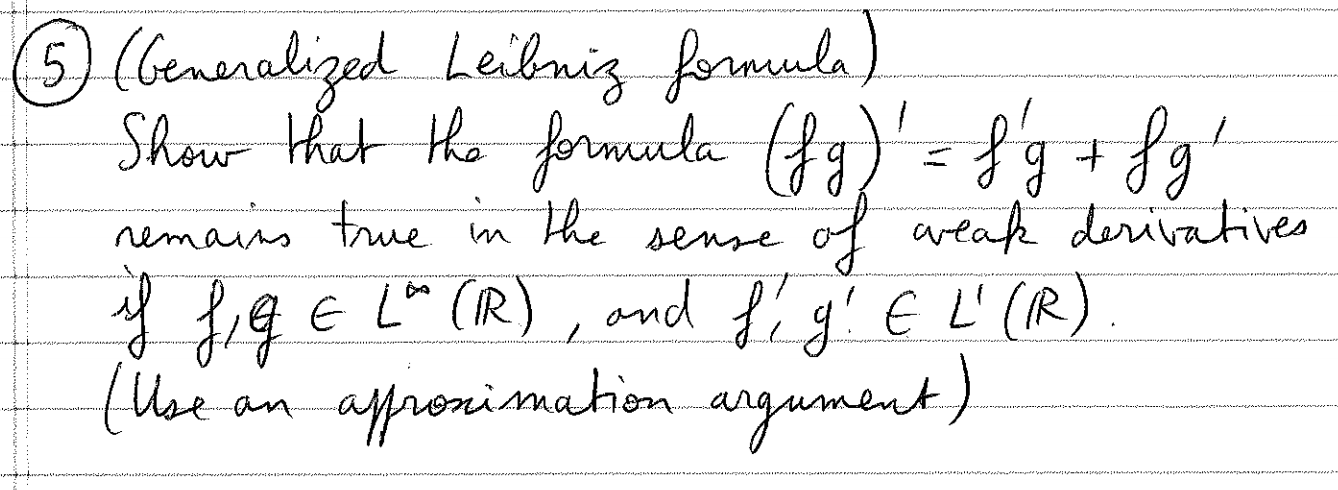 ⑤ (Generalized Leibniz formula)
Show that the formula (fg)' = f'g + fg'
remains true in the sense of weak derivatives
if f, g ∈ L^∞ (ℝ), and f', g' ∈ L¹ (ℝ).
(Use an approximation argument)